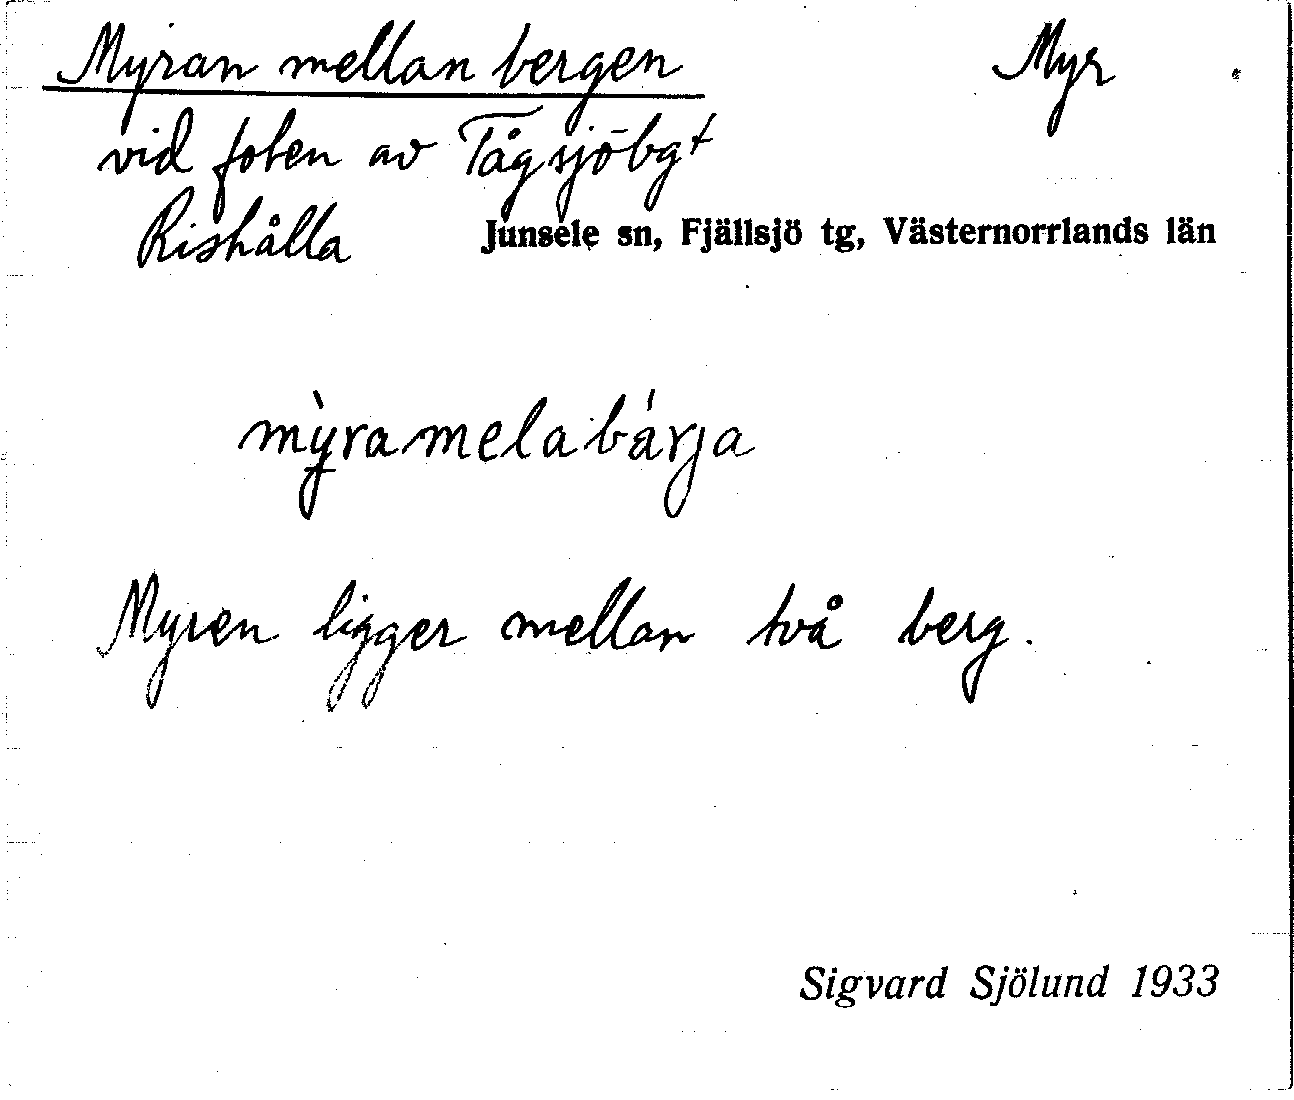 Myran mellan bergen Myr
vid foten av Tågsjöbgt
Rishålla Junsele sn, Fjällsjö tg, Västernorrlands län
mỳramelabárja
Myren ligger mellan två berg.
Sigvard Sjölund 1933